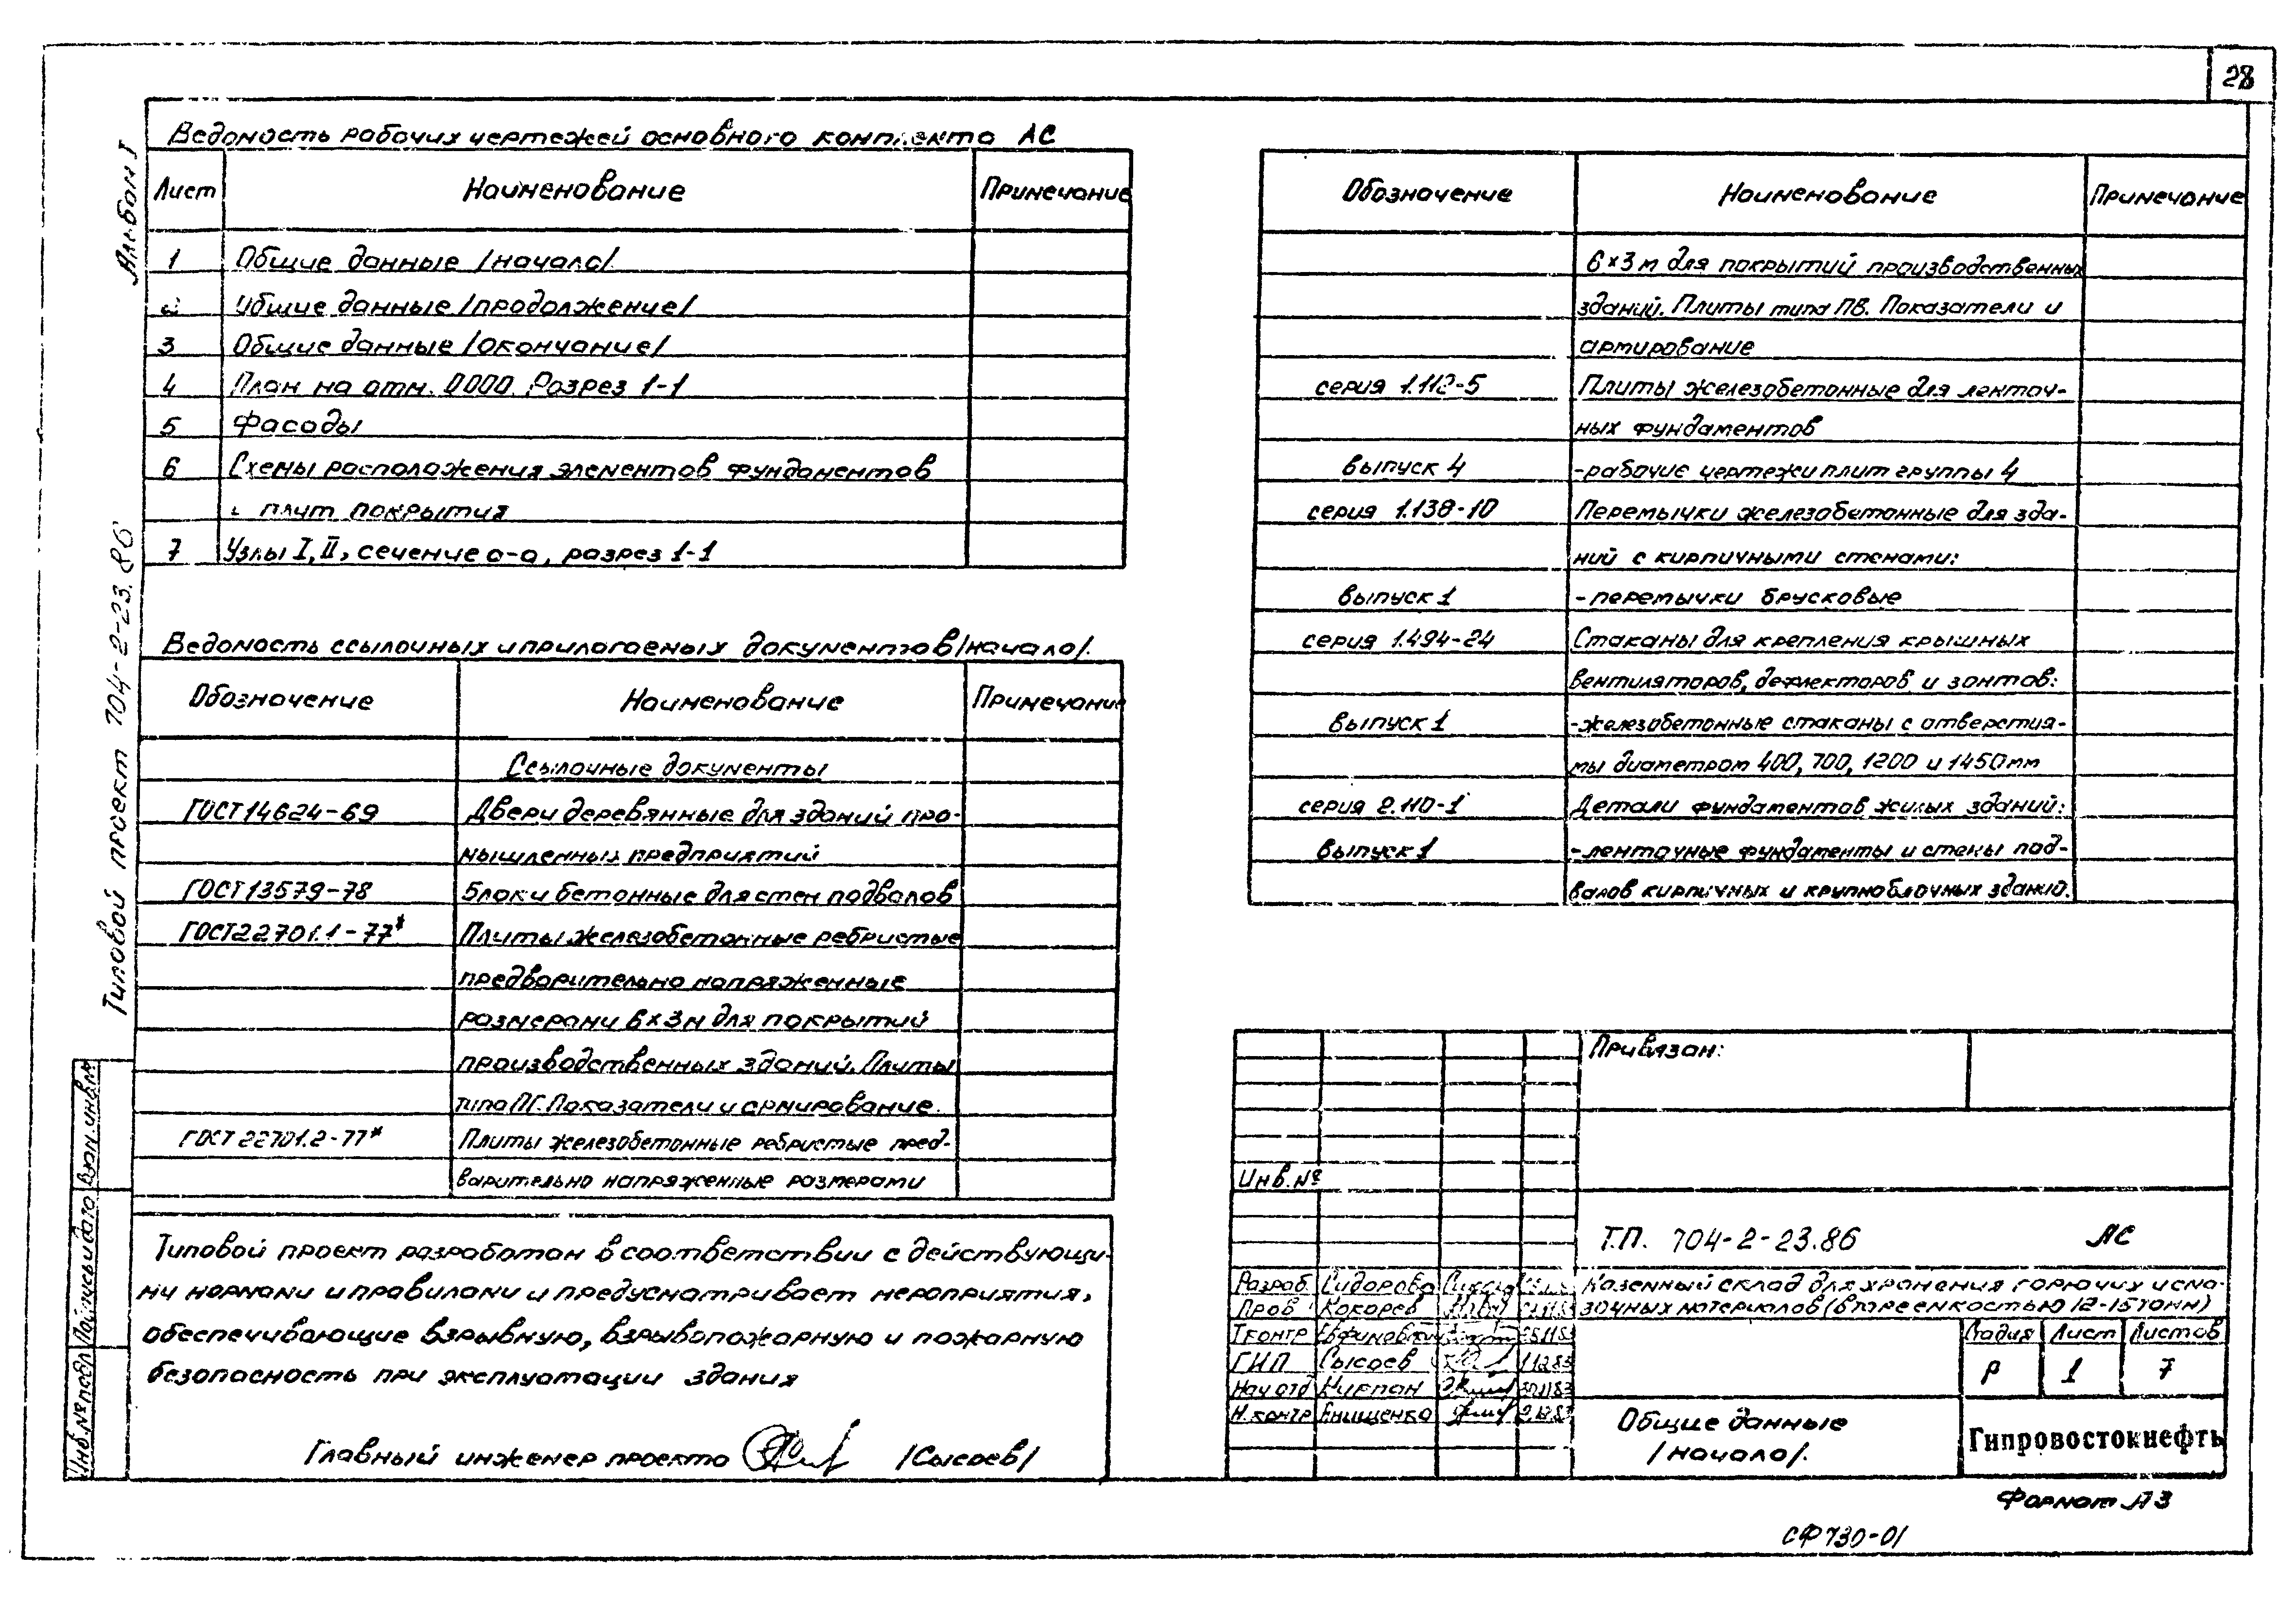 28
Альбом I
Типовой проект 704-2-23.86
Ведомость рабочих чертежей основного комплекта АС
Лист Наименование Примечание
1 Общие данные /начало/.
2 Общие данные /продолжение/
3 Общие данные /окончание/
4 План на отм. 0.000. Разрез 1-1
5 Фасады
6 Схемы расположения элементов фундаментов
и плит покрытия
7 Узлы I, II, сечение а-а, разрез 1-1
Ведомость ссылочных и прилагаемых документов /начало/.
Обозначение Наименование Примечание
Ссылочные документы
ГОСТ 14624-69 Двери деревянные для зданий про-
мышленных предприятий
ГОСТ 13579-78 Блоки бетонные для стен подвалов
ГОСТ 22701.1-77* Плиты железобетонные ребристые
предварительно напряженные
размерами 6×3м для покрытий
производственных зданий. Плиты
типа ПГ. Показатели и армирование.
ГОСТ 22701.2-77* Плиты железобетонные ребристые пред-
варительно напряженные размерами
Типовой проект разработан в соответствии с действующи-
ми нормами и правилами и предусматривает мероприятия,
обеспечивающие взрывную, взрывопожарную и пожарную
безопасность при эксплуатации здания
Главный инженер проекта /Сысоев/
Обозначение Наименование Примечание
6×3 м для покрытий производственных
зданий. Плиты типа ПВ. Показатели и
армирование
серия 1.112-5 Плиты железобетонные для ленточ-
ных фундаментов
выпуск 4 -рабочие чертежи плит группы 4
серия 1.138-10 Перемычки железобетонные для зда-
ний с кирпичными стенами:
выпуск 1 -перемычки брусковые
серия 1.494-24 Стаканы для крепления крышных
вентиляторов, дефлекторов и зонтов:
выпуск 1 -железобетонные стаканы с отверстия-
мы диаметром 400, 700, 1200 и 1450мм
серия 2.110-1 Детали фундаментов жилых зданий:
выпуск 1 -ленточные фундаменты и стены под-
валов кирпичных и крупноблочных зданий.
Привязан:
Инв.№
Т.П. 704-2-23.86 АС
Разраб. Сидорова
Пров. Кокорев
Т.контр
ГИП Сысоев 1.12.83
Нач.отд Кирпан 30.11.83
Н.контр Енищенко
Казенный склад для хранения горючих и сма-
зочных материалов (в таре емкостью 12-15 тонн)
Стадия Лист Листов
Р 1 7
Общие данные
/начало/.
Гипровостокнефть
Формат А3
СФ 730-01
Взам.инв.№
Подпись и дата
Инв.№ подл